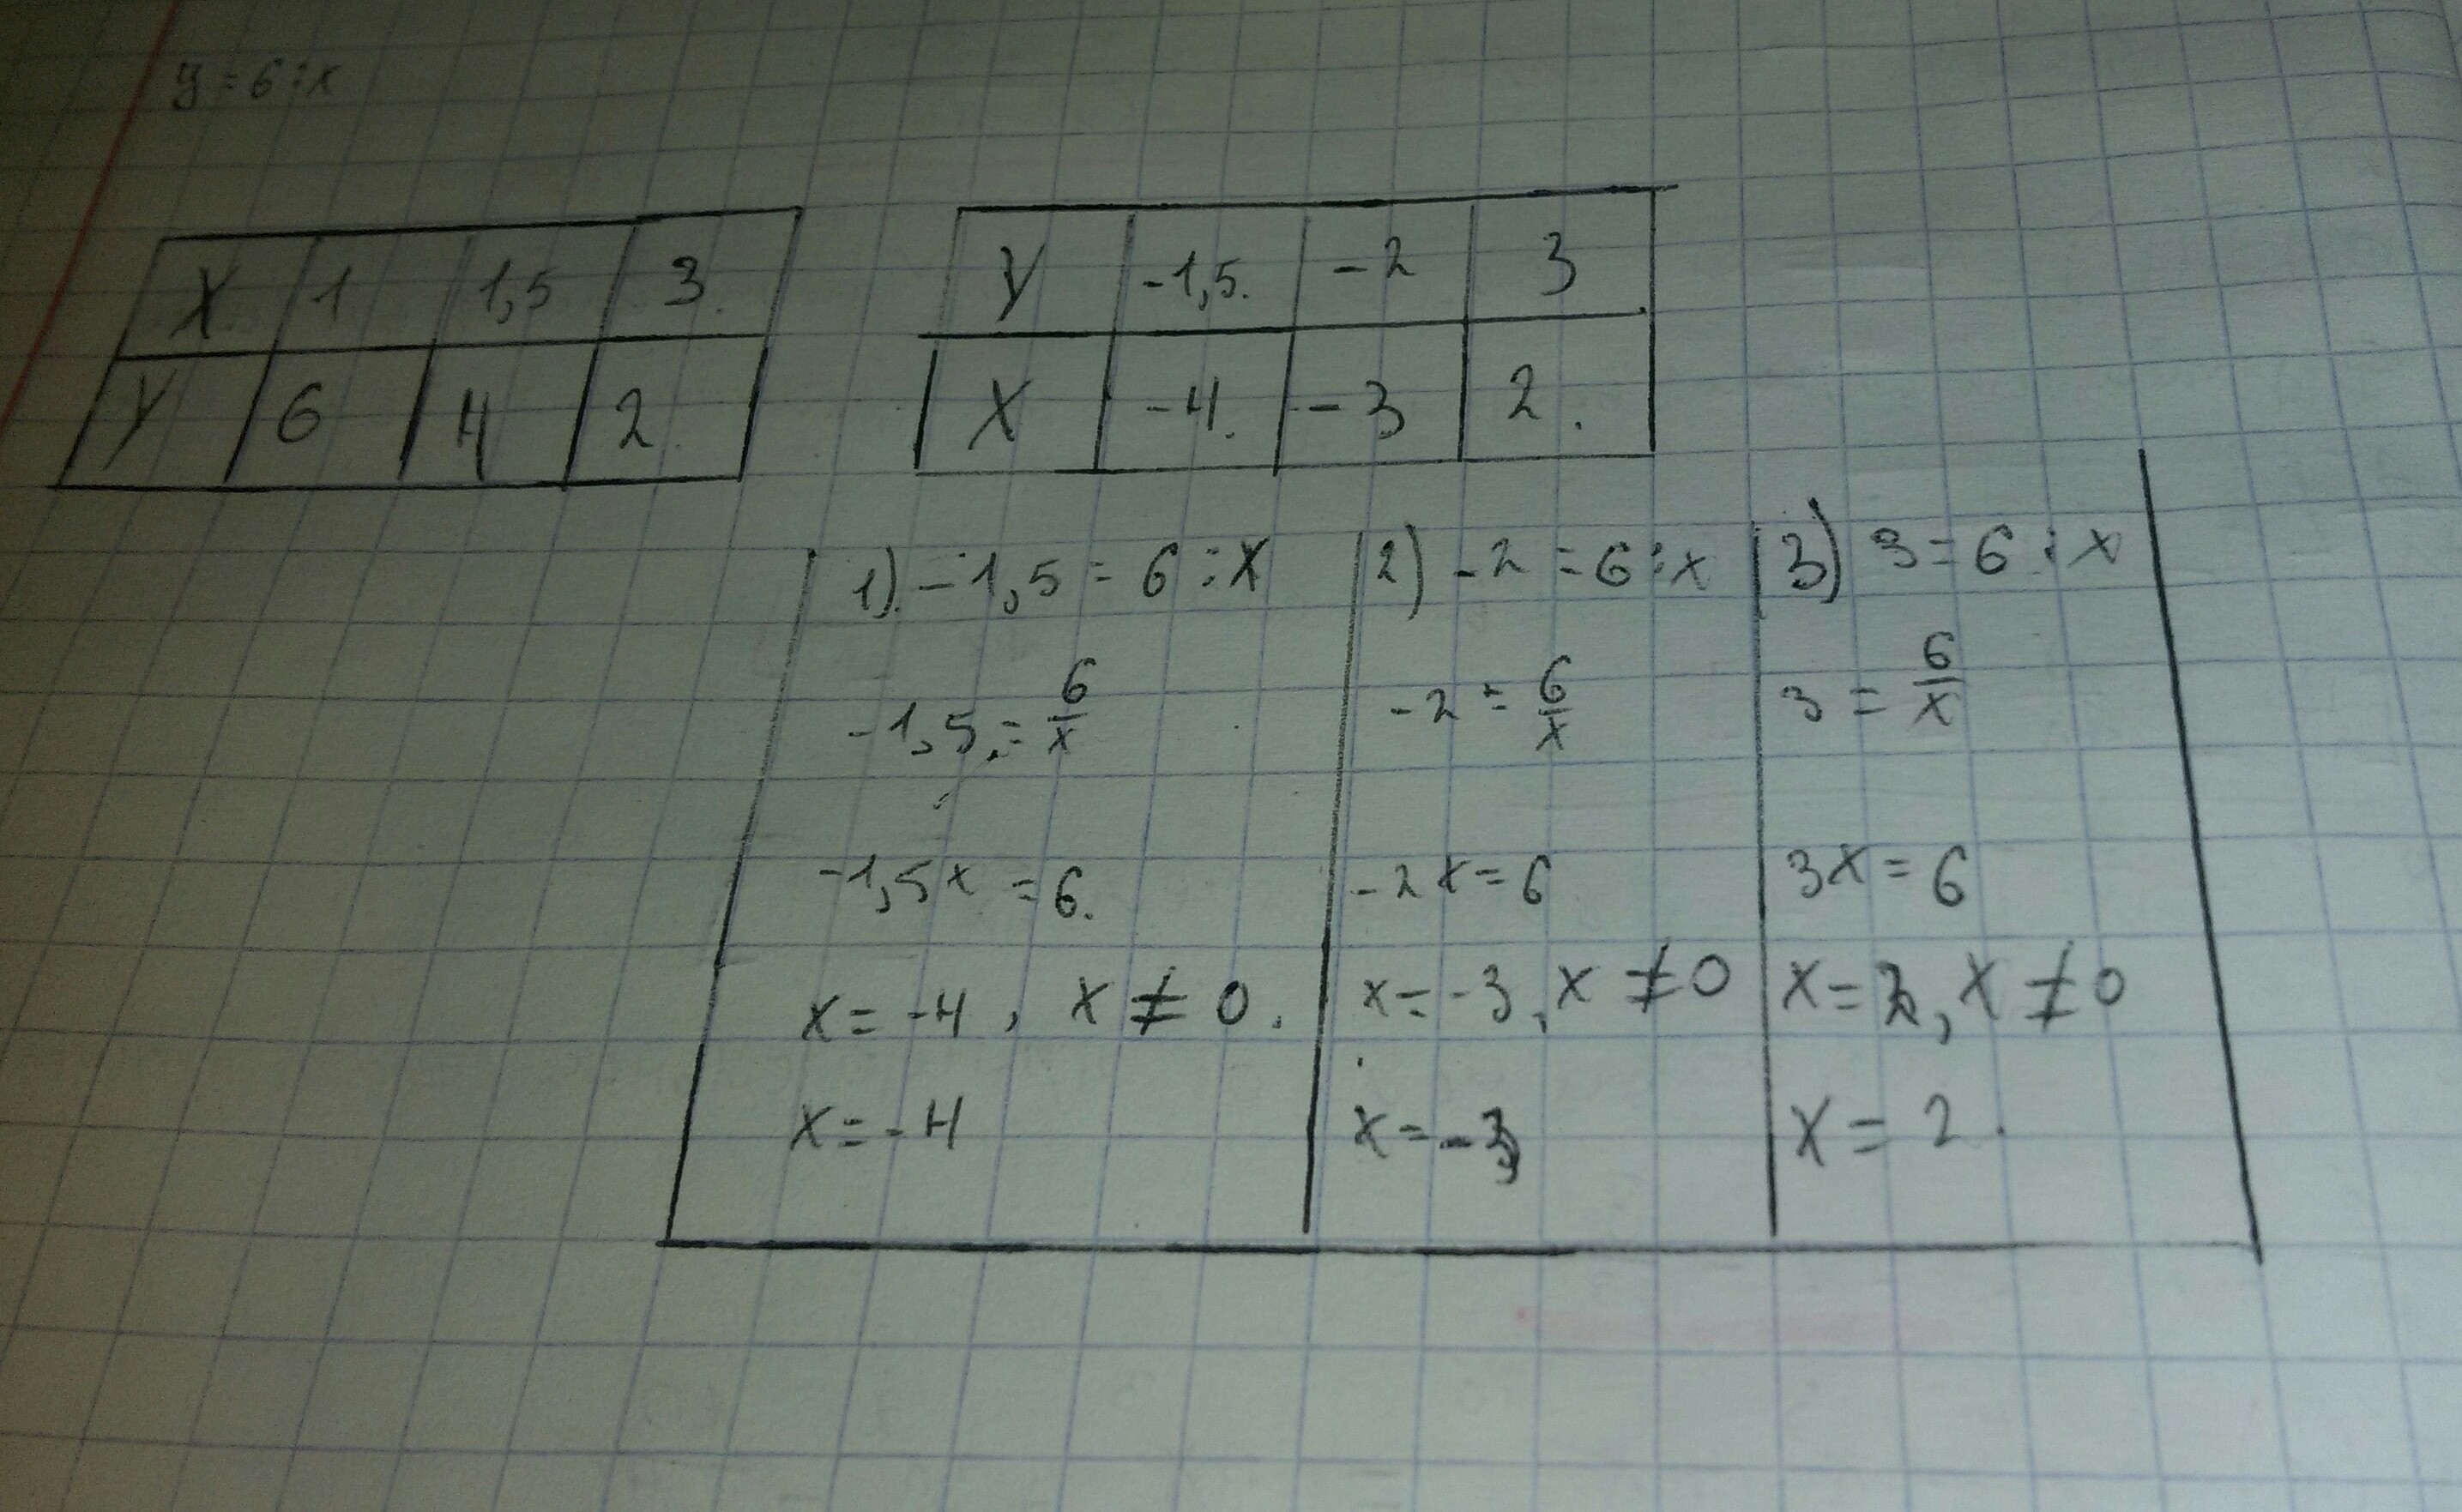 y = 6 : x
X 1 1,5 3.
Y 6 4 2.
Y -1,5. -2 3
X -4. -3 2.
1). -1,5 = 6 : X
-1,5. = 6/x
-1,5x = 6.
x = -4, x ≠ 0.
x = -4
2) -2 = 6 : x
-2 = 6/x
-2x = 6
x = -3, x ≠ 0
x = -3
3) 3 = 6 : x
3 = 6/x
3x = 6
x = 2, x ≠ 0
x = 2.